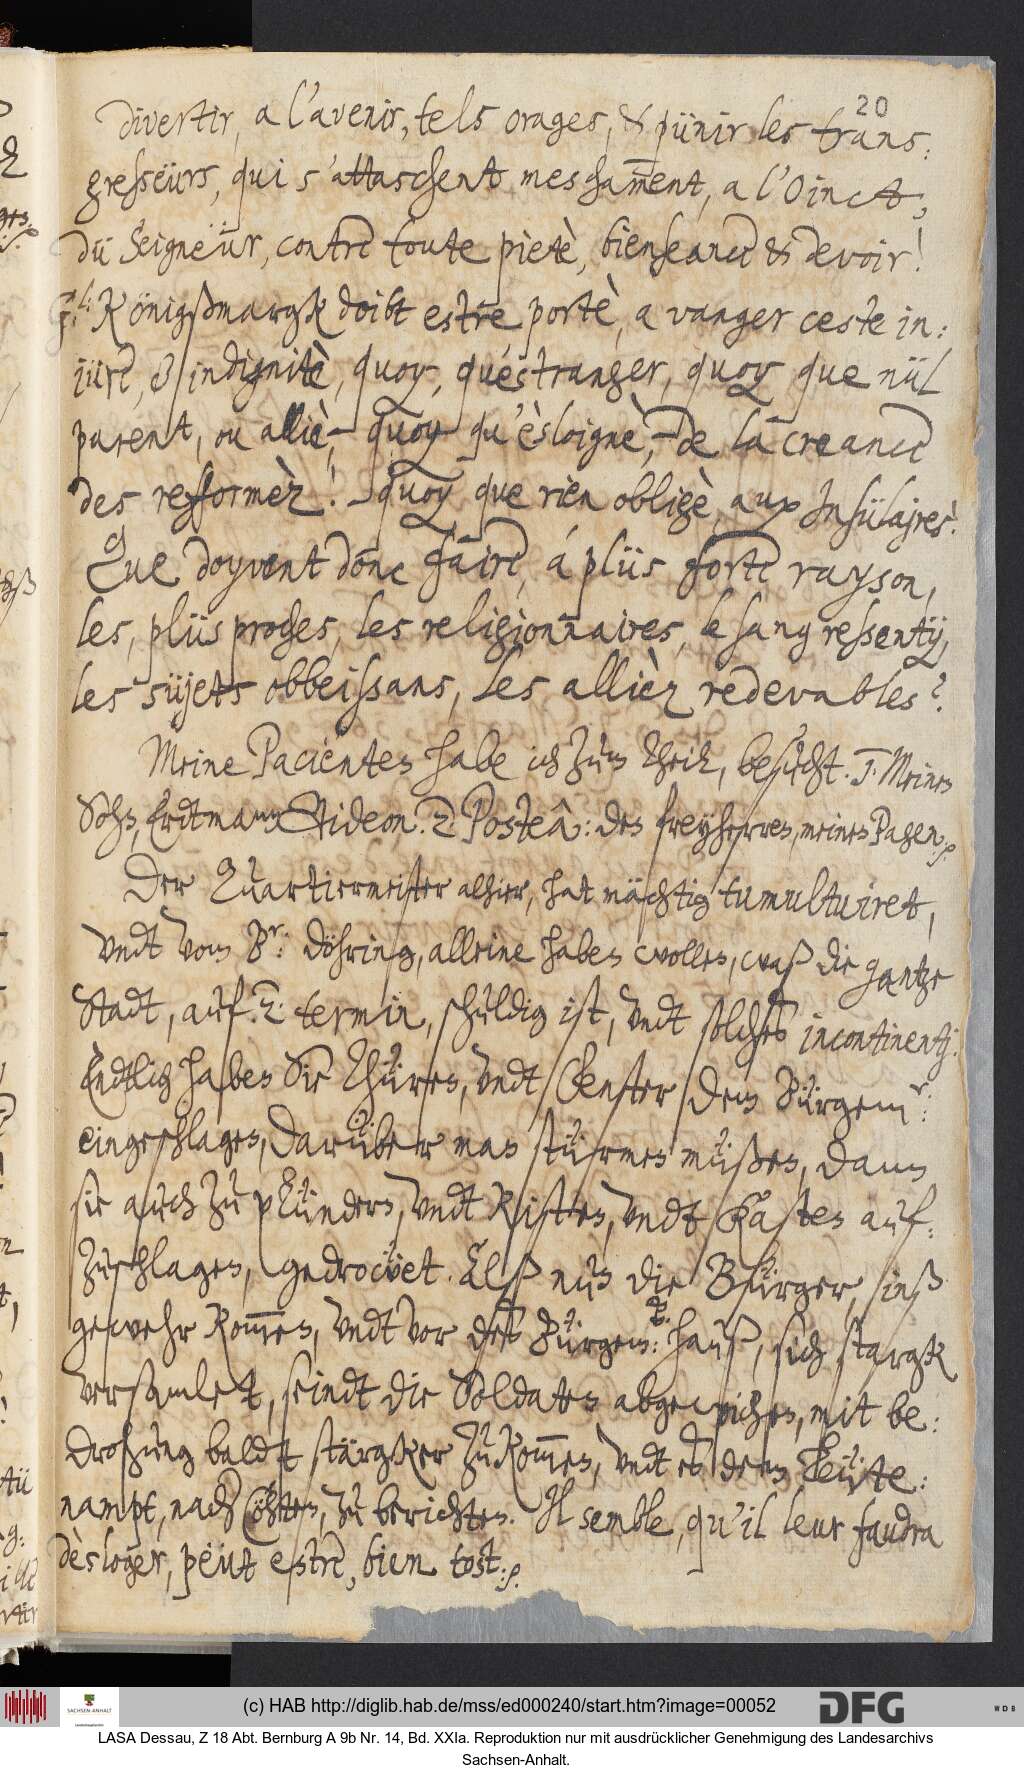 20
divertir, a l'avenir, tels orages, & pünir les trans:
gresseürs, qui s'attaschent mescham̅ent, a l'Oinct,
dü Seigneür, contre toute pietè, bienseance & devoir!
G.l: Königßmargk doibt estre, portè, a vanger ceste in:
jüre, & indignitè, quoy, qu'estranger, quoy que nül
parent, ou alliè, quoy qu'èsloignè, de la creance
des refformèz! quoy que rien obligè, aux Insülajres?
Que doyvent donc faire, á plüs forte rayson,
les, plüs proches, les religion̅aires, le sang ressentÿ,
les süjets obbeissans, les allièz redevables?
Meine Pacienten habe ich zum theil, besucht. 1. Meinen
Sohn, Erdtmann Gideon. 2. Posteâ: des freyherren, meines Pagen.
Der Quartiermeister alhier, hat mächtig tumultuiret,
vndt vom Br: Döhring, alleine haben wollen, waß die gantze
Stadt, auf. 2. termin, schuldig ist, vndt solches incontinentj.
Endtlich haben Sie Thüren, vndt Fenster dem Bürgemr:
eingeschlagen, darüber man stürmen müßen, dann
sie auch zu plündern, vndt Kisten, vndt Kasten auf:
zuschlagen, gedrowet. Alß nun die Bürger, inß
gewehr kom̅en, vndt vor des Bürgem: hauß, sich stargk
versamlet, seindt die Soldaten abgewichen, mit be:
drohung baldt stärgker zukom̅en, vndt es dem Leüte:
nampt, nach Cöhten, zu berichten. Il semble, qu'il leur faudra
dèsloger, peüt estre, bien tost.
(c) HAB http://diglib.hab.de/mss/ed000240/start.htm?image=00052
SACHSEN-ANHALT
DFG
WDB
LASA Dessau, Z 18 Abt. Bernburg A 9b Nr. 14, Bd. XXIa. Reproduktion nur mit ausdrücklicher Genehmigung des Landesarchivs
Sachsen-Anhalt.